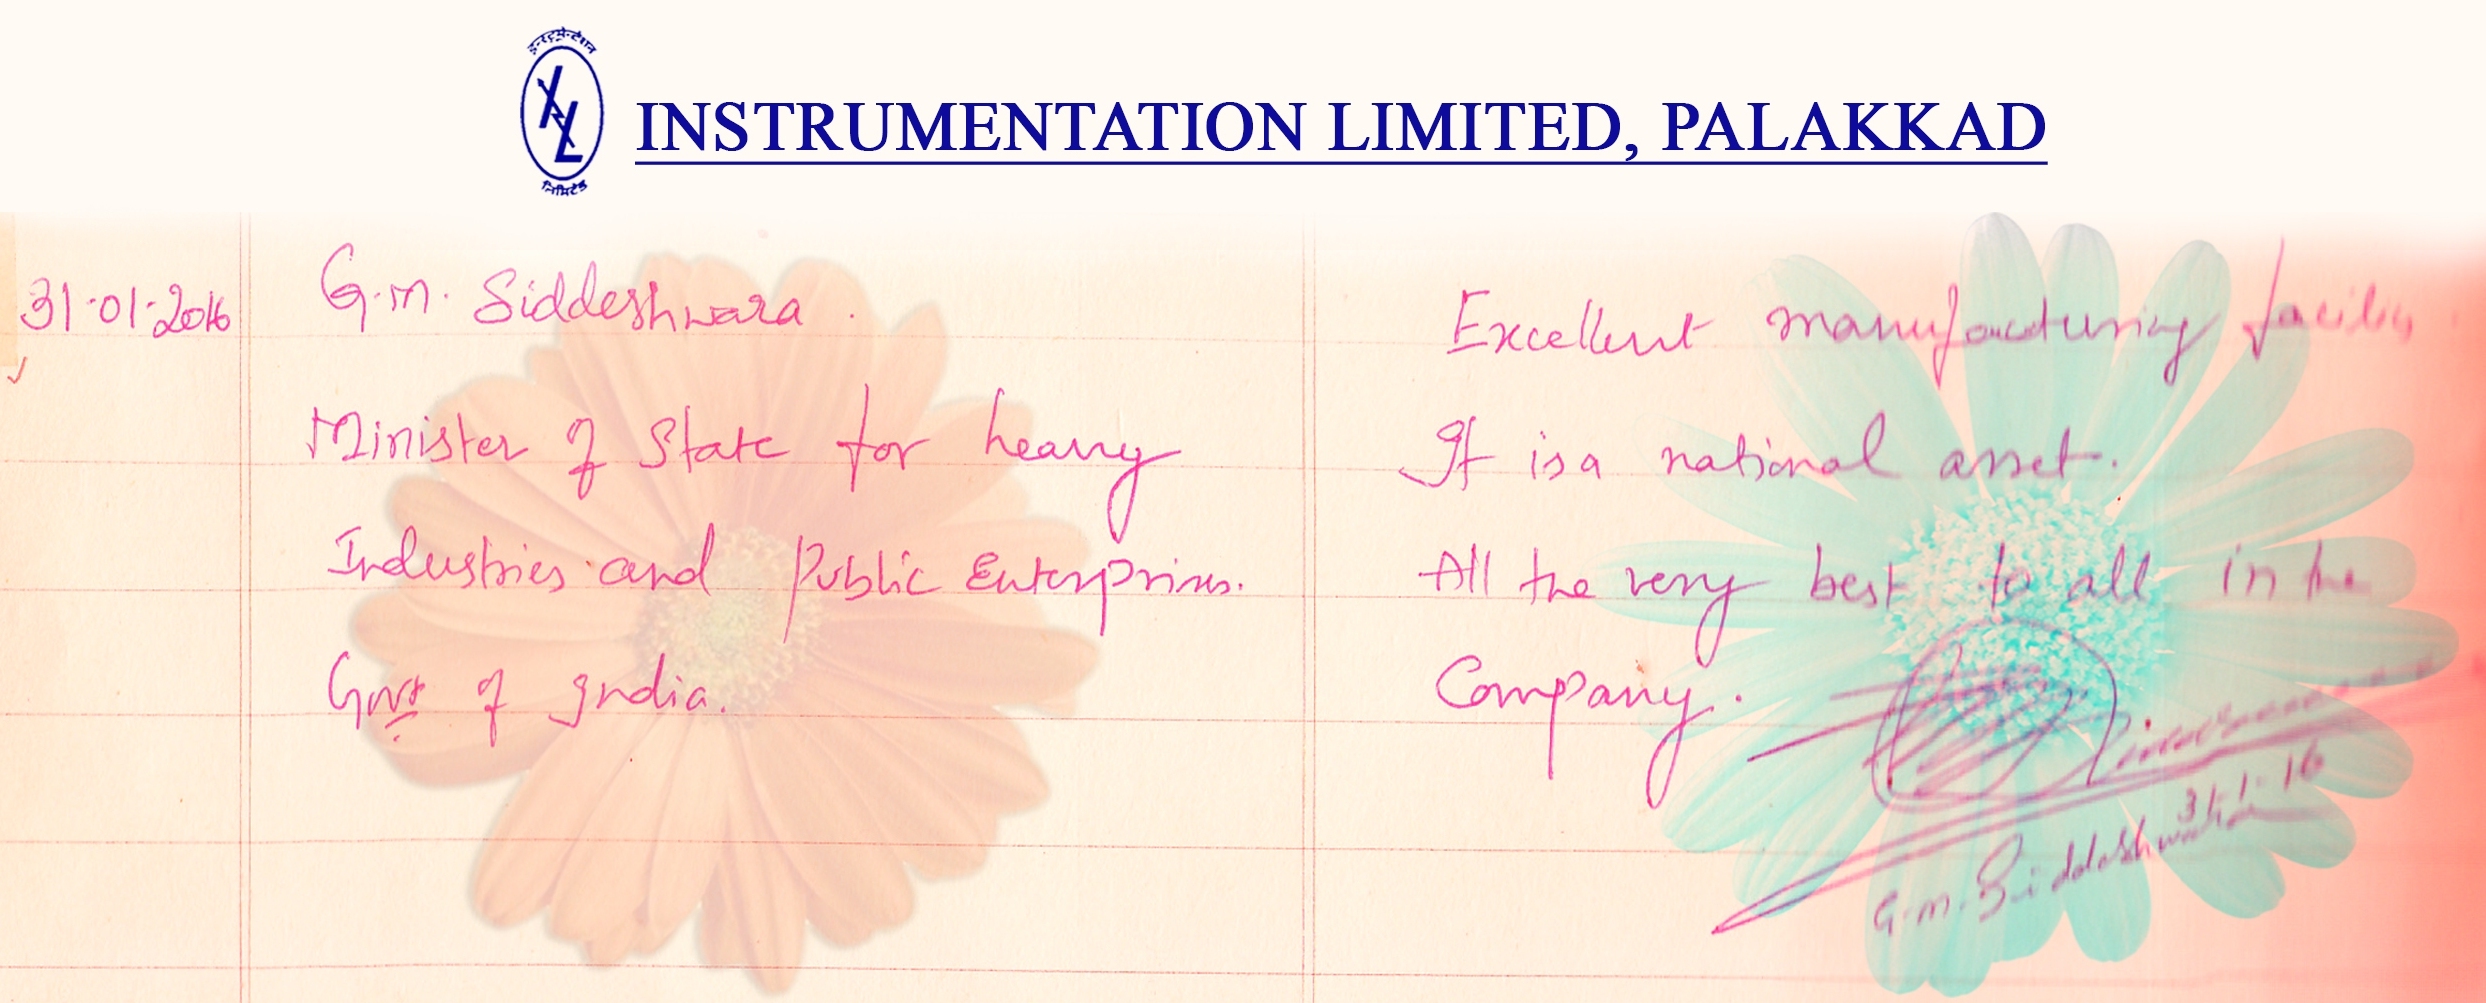 इन्स्ट्रूमेन्टेशन
IL
लिमिटेड
INSTRUMENTATION LIMITED, PALAKKAD
31.01.2016
G.M. Siddeshwara.
Minister of State for heavy
Industries and Public Enterprises.
Govt of India.
Excellent manufacturing facility.
It is a national asset.
All the very best to all in the
Company.
31.1.16
G.M. Siddeshwara